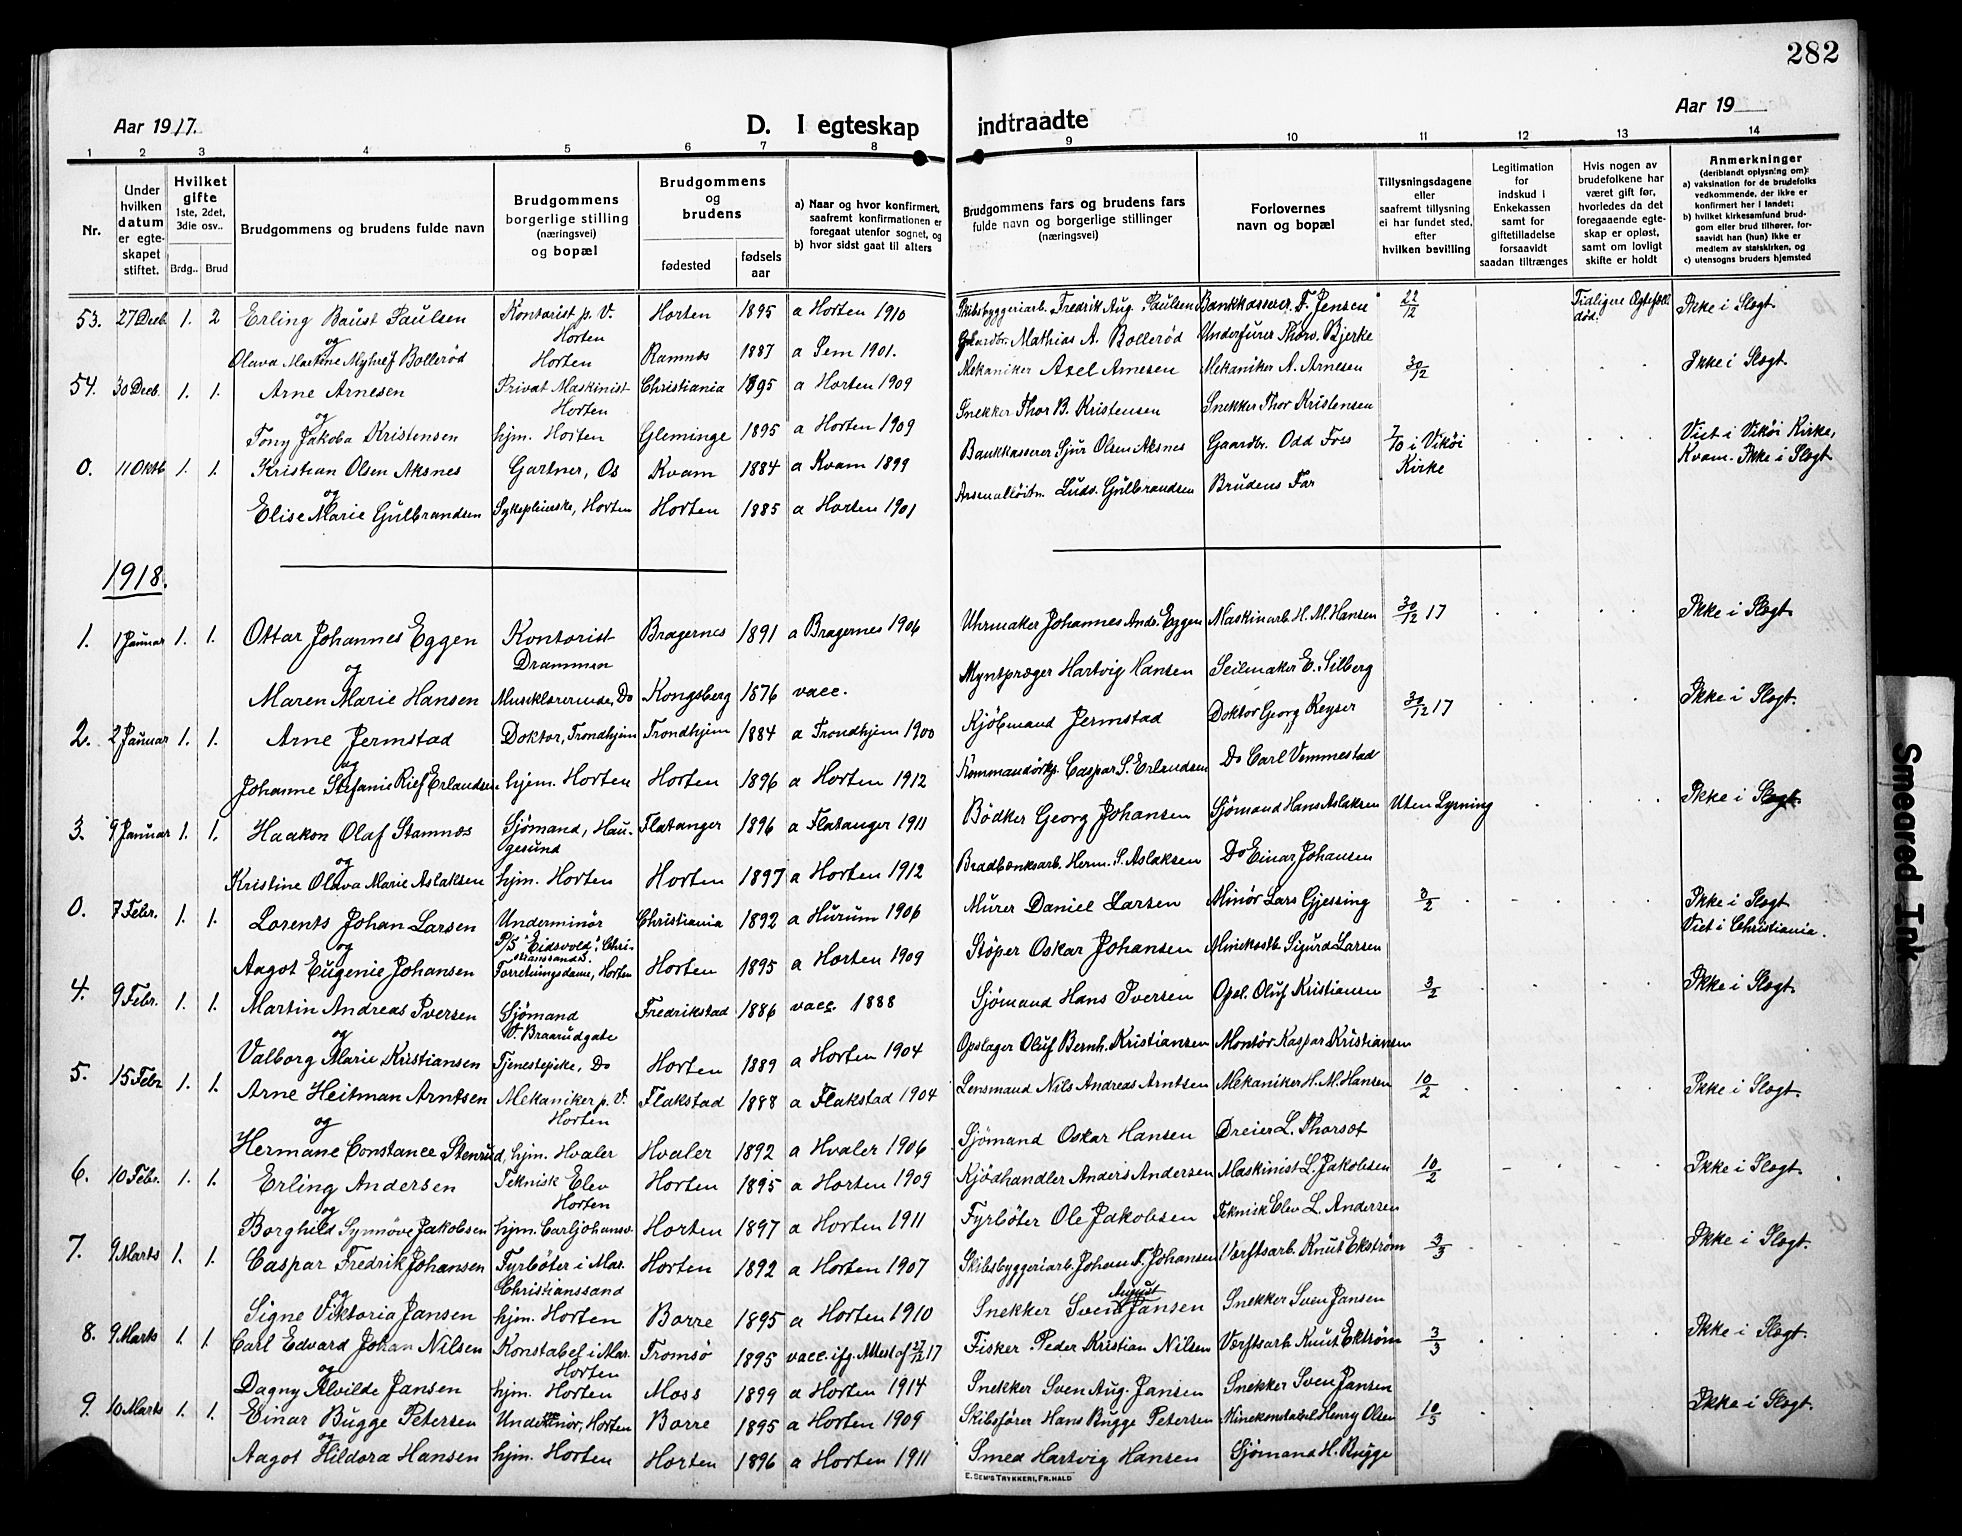 282
Aar 1917.
D. I egteskap indtraadte
Aar 19
1 2 3 4 5 6 7 8 9 10 11 12 13 14
Nr.
Under hvilken datum er egteskapet stiftet.
Hvilket gifte
1ste, 2det, 3die osv..
Brdg.. Brud
Brudgommens og brudens fulde navn
Brudgommens borgerlige stilling (næringsvei) og bopæl
Brudgommens og brudens
fødested
fødsels aar
a) Naar og hvor konfirmert, saafremt konfirmationen er foregaat utenfor sognet, og
b) hvor sidst gaat til alters
Brudgommens fars og brudens fars fulde navn og borgerlige stillinger (næringsvei)
Forlovernes navn og bopæl
Tillysningsdagene eller saafremt tillysning ei har fundet sted, efter hvilken bevilling
Legitimation for indskud i Enkekassen samt for giftetilladelse forsaavidt saadan tiltrænges
Hvis nogen av brudefolkene har været gift før, hvorledes da det foregaaende egteskap er opløst, samt om lovligt skifte er holdt
Anmerkninger (deriblandt oplysning om):
a) vaksination for de brudefolks vedkommende, der ikke er konfirmert her i landet;
b) hvilket kirkesamfund brudgom eller brud tilhører, forsaavidt han (hun) ikke er medlem av statskirken, og
c) utensogns bruders hjemsted
53. 27 Decb. 1. 2 Erling Baust Paulsen Kontorist p. V. Horten Horten 1895 a Horten 1910 Skibsbyggeriarb. Fredrik Aug. Paulsen Bankkasserer F. Jensen 22/12 Tidligere Ægtefæl. död. Ikke i Slægt.
og
Olava Martine Myhre f. Bollerød Horten Ramnes 1887 a Sem 1901. Gaardbr. Mathias A. Bollerød Underfurer Thorv. Bjerke
54. 30 Decb. 1. 1. Arne Arnesen Privat Maskinist Horten Christiania 1895 a Horten 1909 Mekaniker Axel Arnesen Mekaniker A. Arnesen 30/12 Ikke i Slægt.
og
Tony Jakoba Kristensen hjm. Horten Gleminge 1895 a Horten 1909 Snekker Thor B. Kristensen Snekker Thor Kristensen
0. 11 Oktb 1. 1. Kristian Olsen Aksnes Gartner, Os Kvam 1884 a Kvam 1899 Bankkasserer Sjur Olsen Aksnes Gaardbr. Odd Foss 7/10 i Vikøi Kirke Viet i Vikøi Kirke, Kvam. Ikke i Slægt.
og
Elise Marie Gulbrandsen Sykepleierske, Horten Horten 1885 a Horten 1901 Arsenalløitn. Ludv. Gulbrandsen Brudens Far
1918.
1. 1 Januar 1. 1. Ottar Johannes Eggen Kontorist Drammen Bragernes 1891 a Bragernes 1906 Uhrmaker Johannes Andr. Eggen Maskinarb. H. M. Hansen 30/12 17 Ikke i Slægt.
og
Maren Marie Hansen Musiklærerinde, Do Kongsberg 1876 vacc. Myntpræger Hartvig Hansen Seilmaker E. Silberg
2. 2 Januar 1. 1. Arne Jermstad Doktor, Trondhjem Trondhjem 1884 a Trondhjem 1900 Kjøbmand Jermstad Doktor Georg Keyser 30/12 17 Ikke i Slægt.
og
Johanne Stefanie Rief Erlandsen hjem. Horten Horten 1896 a Horten 1912 Kommandørkp. Caspar S. Erlandsen Do Carl Vemmestad
3. 9 Januar 1. 1. Haakon Olaf Stamnes Sjømand, Haugesund Flatanger 1896 a Flatanger 1911 Bødker Georg Johansen Sjømand Hans Aslaksen Uten Lysning Ikke i Slægt
og
Kristine Olava Marie Aslaksen hjm. Horten Horten 1897 a Horten 1912 Bradbænksarb. Herm. S. Aslaksen Do Einar Johansen
0. 7 Febr. 1. 1. Lorents Johan Larsen Underminör P/S "Eidsvold", Christianssand. Christiania 1892 a Hurum 1906 Murer Daniel Larsen Minør Lars Gjessing 3/2 Ikke i Slægt Viet i Christiania.
og
Aagot Eugenie Johansen Forretningsdame, Horten Horten 1895 a Horten 1909 Støper Oskar Johansen Minekstb. Sigurd Larsen
4. 9 Febr. 1. 1. Martin Andreas Iversen Sjømand V. Braarudgate Fredrikstad 1886 vacc. 1888 Sjømand Hans Iversen Opsl. Oluf Kristiansen 3/2 Ikke i Slægt.
og
Valborg Marie Kristiansen Tjenestepike, Do Horten 1889 a Horten 1904 Opslager Oluf Bernh. Kristiansen Montør Kaspar Kristiansen
5. 15 Febr. 1. 1. Arne Heitman Arntsen Mekaniker p. V. Horten Flakstad 1888 a Flakstad 1904 Lensmand Nils Andreas Arntsen Mekaniker H. M. Hansen 10/2 Ikke i Slægt.
og
Hermane Constance Stenrud, hjm. Hvaler Hvaler 1892 a Hvaler 1906 Sjømand Oskar Hansen Dreier L. Thorsøt
6. 10 Febr. 1. 1. Erling Andersen Teknisk Elev Horten Horten 1895 a Horten 1909 Kjødhandler Anders Andersen Maskinist L. Jakobsen 10/2 Ikke i Slægt.
og
Borghild Synnøve Jakobsen hjm. Carljohansv. Horten 1897 a Horten 1911 Fyrbøter Ole Jakobsen Teknisk Elev L. Andersen
7. 9 Marts 1. 1. Caspar Fredrik Johansen Fyrbøter i Mar. Christianssand Horten 1892 a Horten 1907 Skibsbyggeriarb. Johan F. Johansen Værftsarb. Knut Ekstrøm 3/3 Ikke i Slægt.
og
Signe Viktoria Jansen hjm. Horten Borre 1895 a Horten 1910 Snekker Sven August Jansen Snekker Sven Jansen
8. 9 Marts 1. 1. Carl Edvard Johan Nilsen Konstabel i Mar. Horten Tromsø 1895 vacc. ifg. Attest af 27/12 17 Fisker Peder Kristian Nilsen Værftsarb. Knut Ekstrøm 3/3 Ikke i Slægt.
og
Dagny Alvilde Jansen hjm. Horten Moss 1899 a Horten 1914 Snekker Sven Aug. Jansen Snekker Sven Jansen
9. 10 Marts 1. 1. Einar Bugge Petersen Underminör, Horten Borre 1895 a Horten 1909 Skibsfører Hans Bugge Petersen Minekonstabel Henry Olsen 10/3 Ikke i Slægt.
og
Aagot Hildora Hansen hjm. Horten Horten 1896 a Horten 1911 Smed Hartvig Hansen Sjømand H. Bugge
E. Sem's Trykkeri, Fr.hald
Smeared Ink